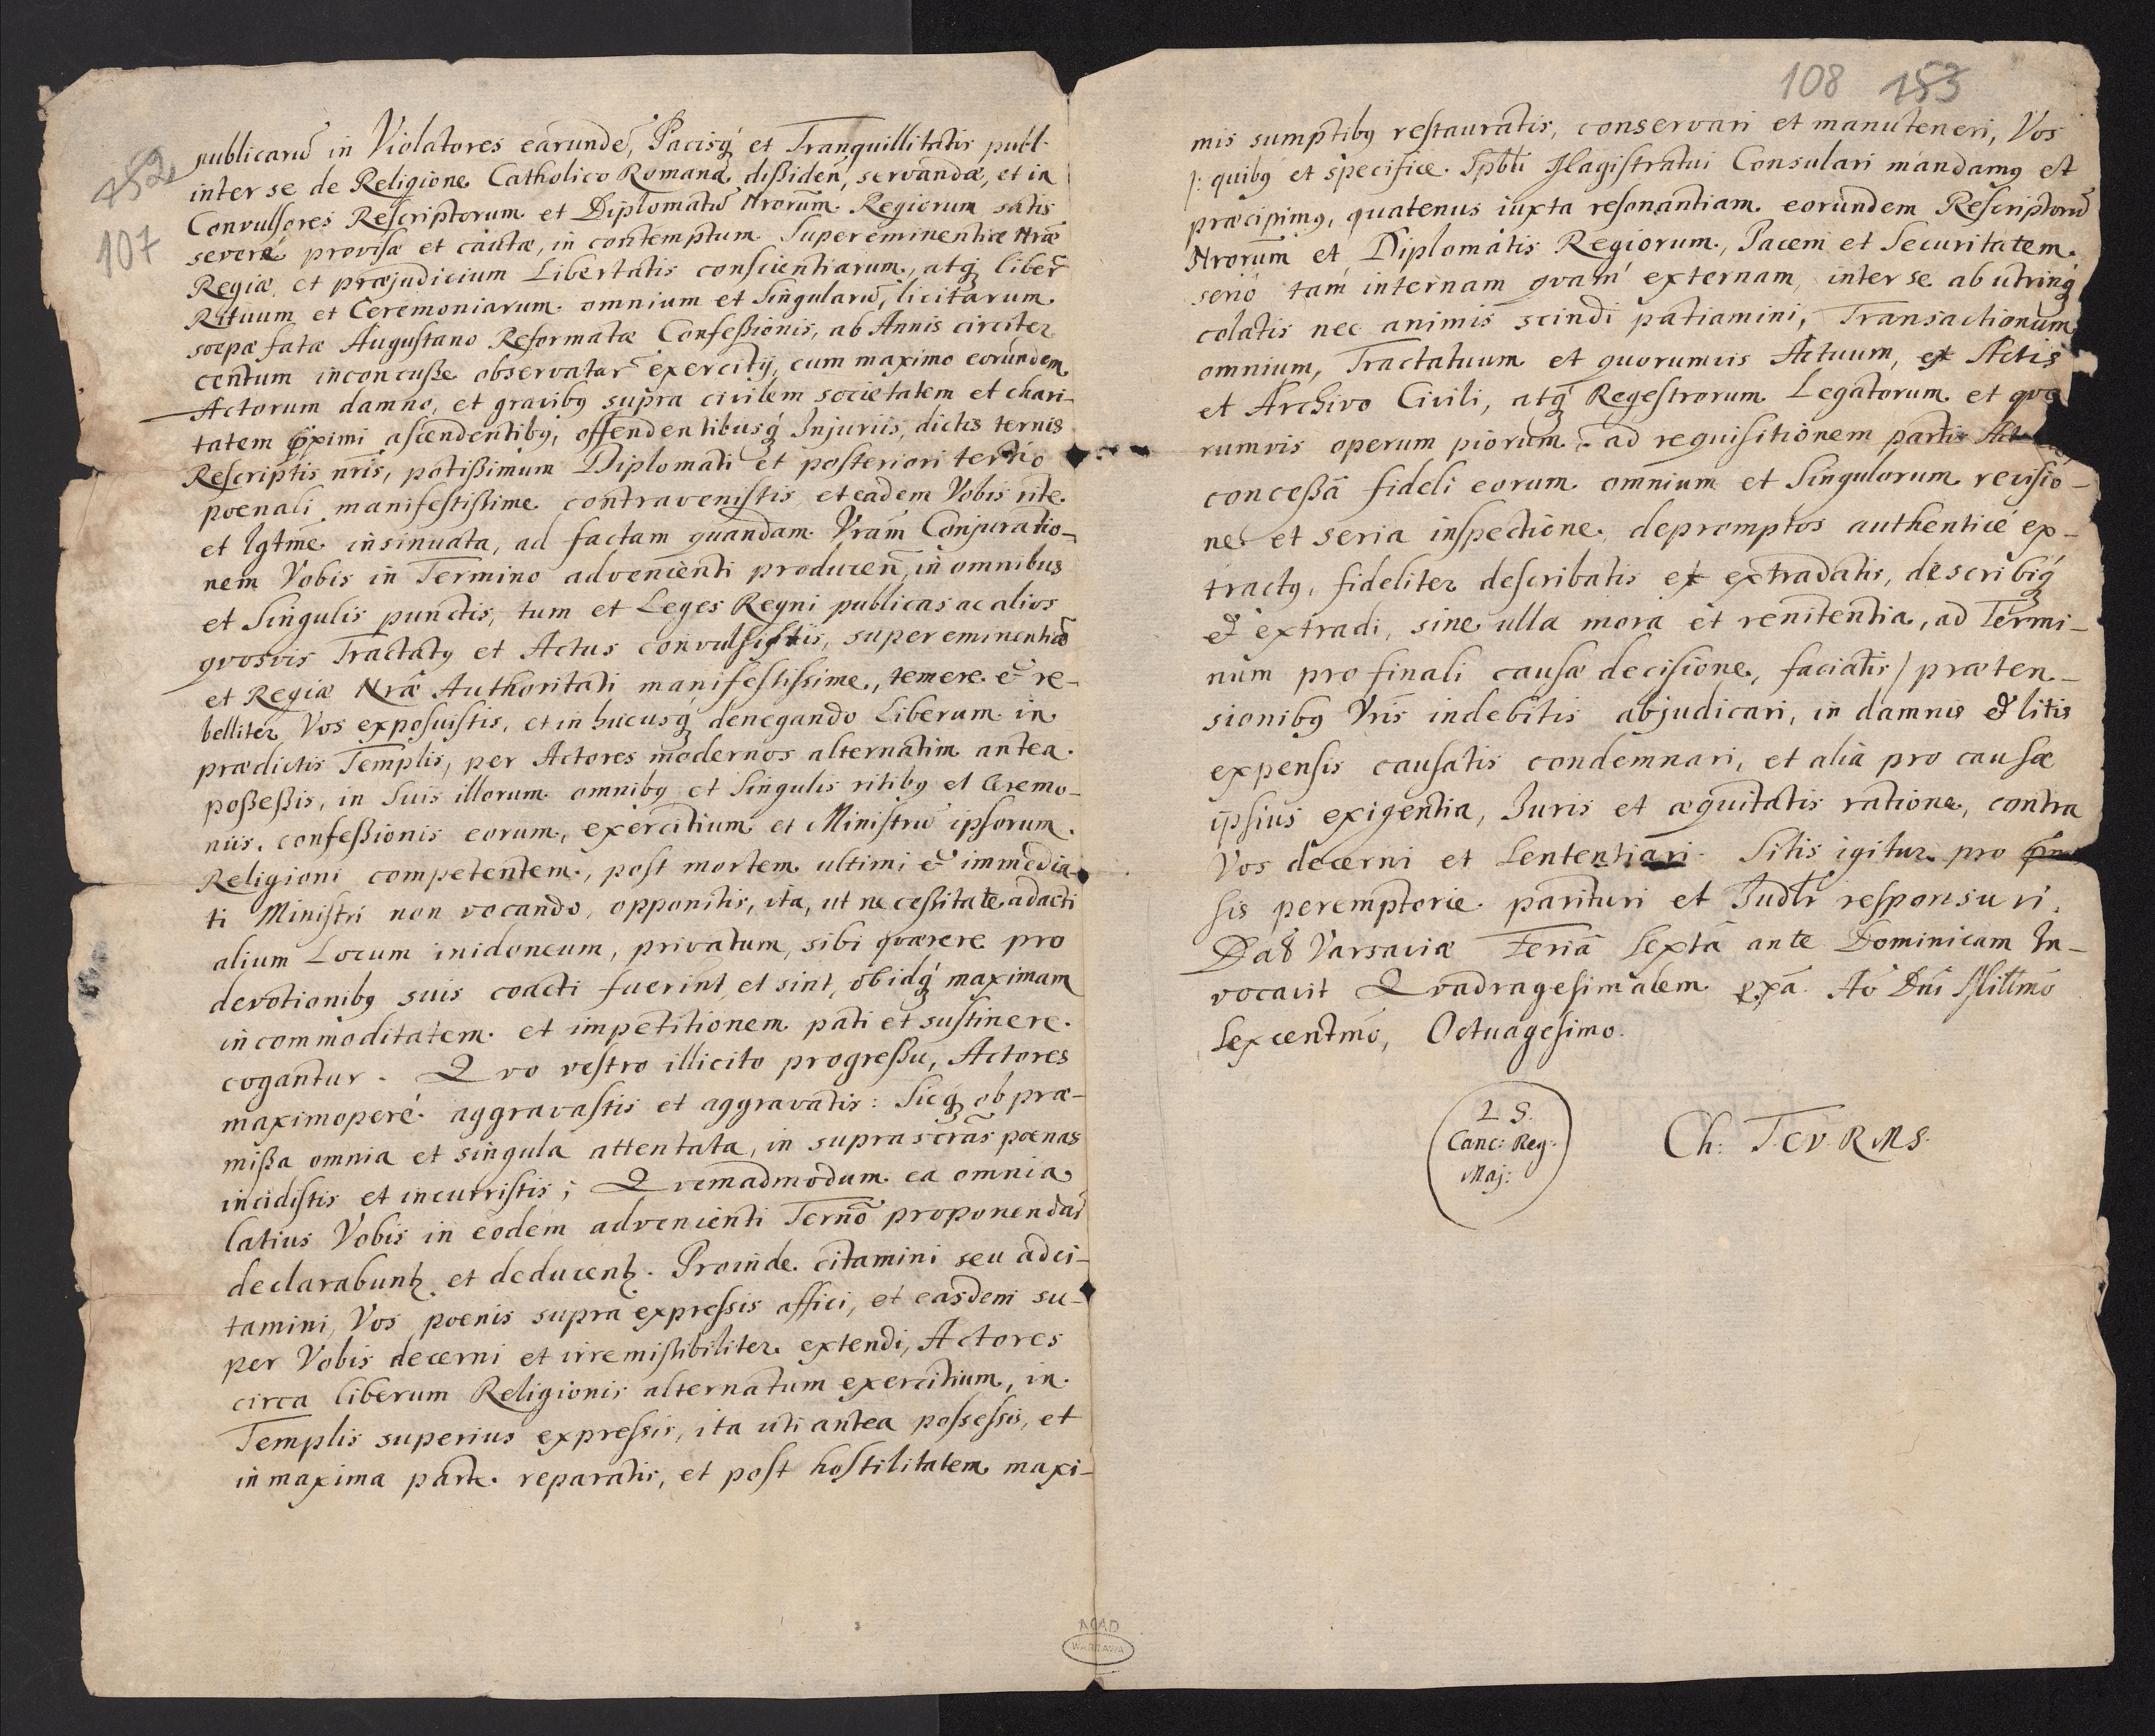 152
107
publicarū in Violatores earundē, Pacisq́ et Tranquillitatis publ.
inter se de Religione Catholico Romana dißiden̄, servandæ, et in
Convulsores Rescriptorum et Diplomatū Nrorūm Regiorum satis
severæ provisæ et cautæ, in contemptum Supereminentiæ Nræ
Regiæ et præjudicium Libertatis conscientiarum, atq́ liber̄
Rituum et Ceremoniarum omnium et Singularū, licitarum
soepæ fatæ Augustano Reformatæ Confeßionis, ab Annis circiter
centum inconcuße observatar̄ exercitÿ, cum maximo eorundem
Actorum damno, et gravibꝰ supra civilem societatem et chari-
tatem pximi ascendentibꝰ, offendentibusq́ Injuriis, dictis ternis
Rescriptis nris, potißimum Diplomati et posteriori tertio
poenali manifestißime contravenistis et eadem Vobis rite
et lgtme insinuata, ad factam quandam Vram Conjuratio-
nem Vobis in Termino advenienti producen̄, in omnibus
et Singulis punctis, tum et Leges Regni publicas ac alios
qvosvis Tractatꝰ et Actus convulsistis, supereminentiæ
et Regiæ Nræ Authoritati manifestissime, temere & re-
belliter Vos exposuistis, et in hucusq́ denegando Liberum in
prædictis Templis, per Actores modernos alternatim antea
poßeßis, in Suis illorum omnibꝰ et Singulis ritibꝰ et Ceremo-
niis, confeßionis eorum, exercitium et Ministrū ipsorum
Religioni competentem, post mortem ultimi & immedia-
ti Ministri non vocando, opponitis, ita, ut neceßitate adacti
alium Locum inidoneum, privatum, sibi qværere pro
devotionibꝰ suis coacti fuerint et sint, ob idq́ maximam
incommoditatem et impetitionem pati et sustinere
cogantur. Qvo vestro illicito progreßu, Actores
maximoperé aggravastis et aggravatis: Sicq́ ob præ-
mißa omnia et singula attentata, in suprascras poenas
incidistis et incurristis; Qvemadmodum ea omnia
latius Vobis in eodem advenienti Terno proponendas
declarabunt et deducent. Proinde citamini seu adci-
tamini, Vos poenis supra expressis affici, et easdem su-
per Vobis decerni et irremissibiliter extendi, Actores
circa liberum Religionis alternatum exercitium, in
Templis superius expressis, ita uti antea possessis, et
in maxima parte reparatis, et post hostilitatem maxi-
108 153
mis sumptibꝰ restauratis, conservari et manuteneri, Vos
/: quibꝰ et specifice Spbli Magistratui Consulari mandamꝰ et
præcipimꝰ, quatenus iuxta resonantiam eorundem Rescriptorū
Nrorum et Diplomatis Regiorum, Pacem et Securitatem
serio tam internam qvam externam, inter se ab utrinq́
colatis nec animis scindi patiamini, Transactionum
omnium, Tractatuum et quorumvis Actuum, ex Actis
et Archivo Civili, atq́ Regestrorum Legatorum et qvo
rumvis operum piorum, ad requisitionem partis Act
conceßâ fideli eorum omnium et Singulorum revisio-
ne et seria inspectione, depromptos authenticé ex-
tractꝰ, fideliter describatis et extradatis, describiq́
& extradi, sine ulla mora et renitentia, ad Termi-
num pro finali causæ decisione, faciatis/ præten-
sionibꝰ Vris indebitis abjudicari, in damnis & litis
expensis causatis condemnari, et alia pro causæ
ipsius exigentia, Juris et æquitatis ratione, contra
Vos decerni et Sententiari. Sitis igitur pro
sis peremptorie parituri et Judtr responsuri.
Dat Varsaviæ Feriâ Sextâ ante Dominicam In-
vocavit Qvadragesimalem pxâ. Ao Dni Millmo
Sexcentmo, Octuagesimo.
L S.
Canc: Reg:
Maj:
Ch: T.cv. R MS.
AGAD
WARSZAWA